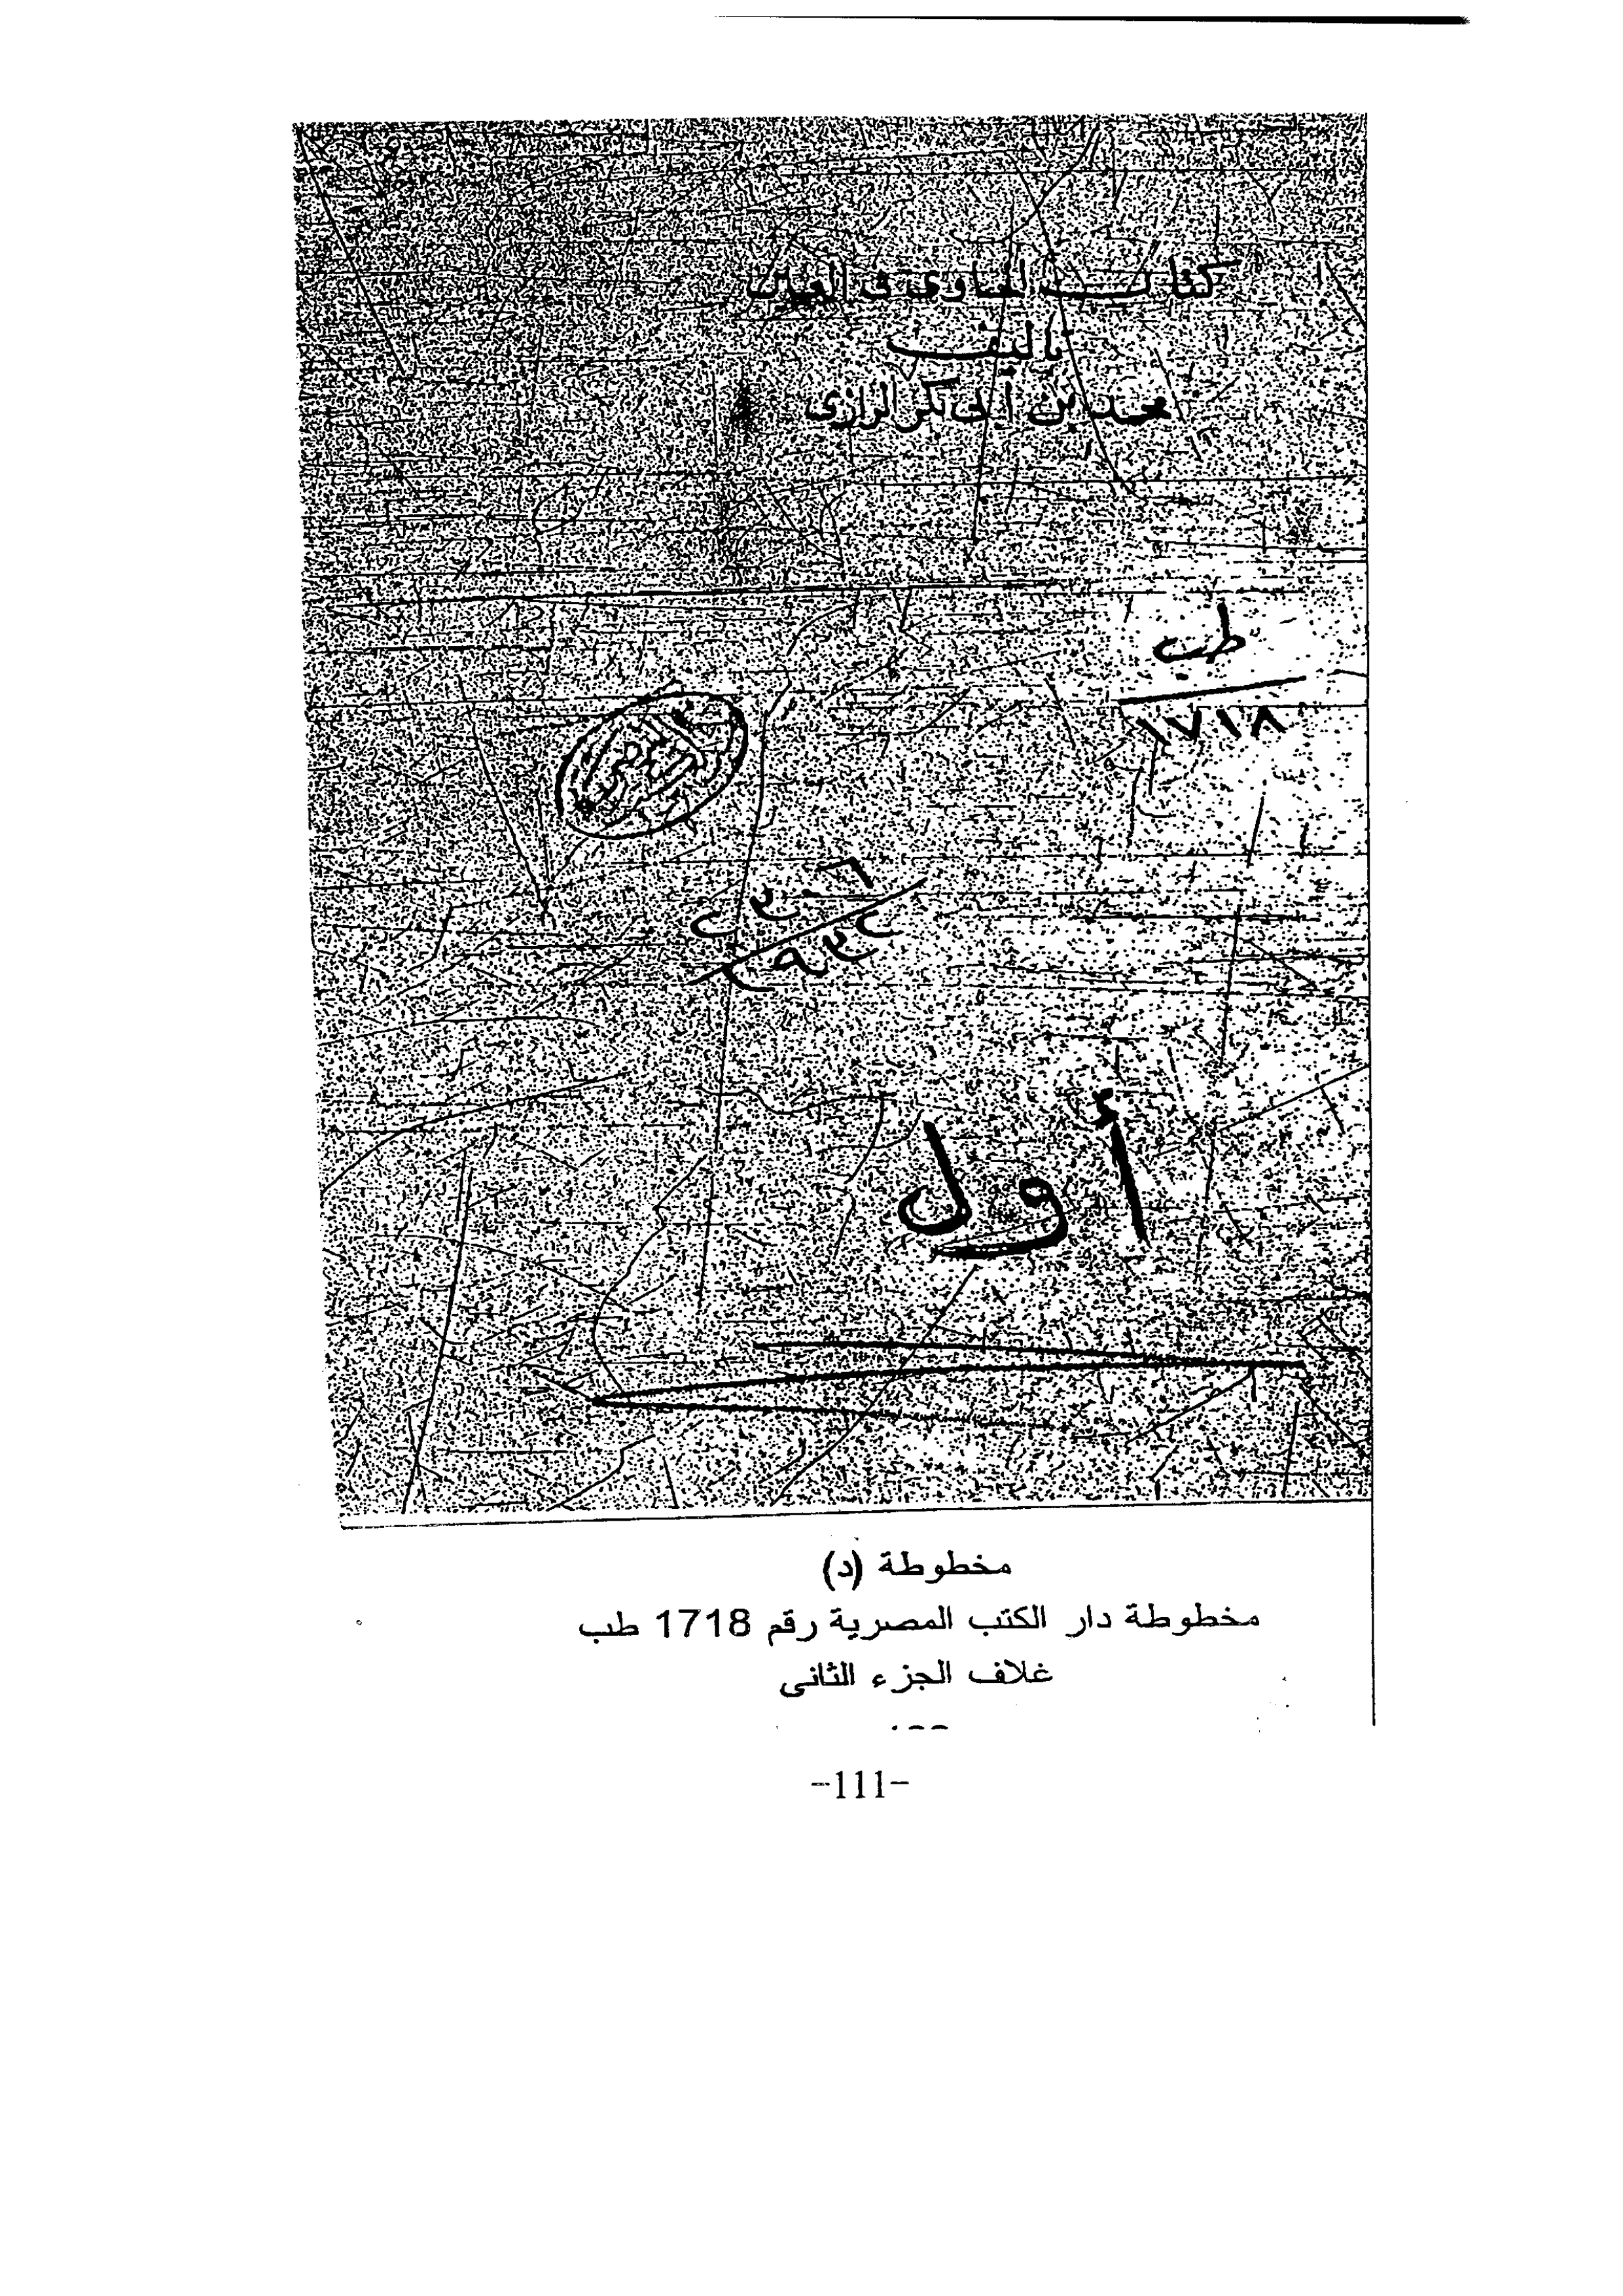 كتاب الحاوى فى العين
تاليف
محمد بن أبى بكر الرازى
طب
١٧١٨
أول
مخطوطة (د)
مخطوطة دار الكتب المصرية رقم 1718 طب
غلاف الجزء الثانى
-111-